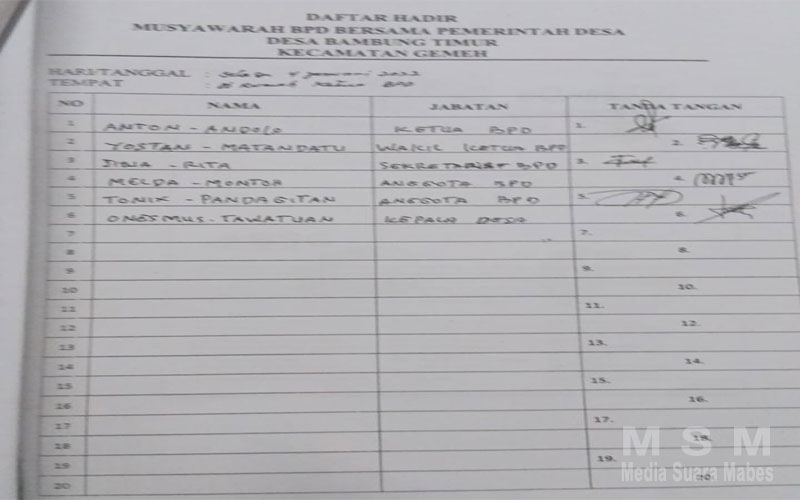 DAFTAR HADIR
MUSYAWARAH BPD BERSAMA PEMERINTAH DESA
DESA BAMBUNG TIMUR
KECAMATAN GEMEH
HARI/TANGGAL : 2022
TEMPAT : BPD
NO NAMA JABATAN TANDA TANGAN
1 ANTON - ANDOLO KETUA BPD 1.
2 YOSTAN - MATANDATU WAKIL KETUA BPD 2.
3 DINA - RITA SEKRETARIS BPD 3.
4 MELDA - MONTOH ANGGOTA BPD 4.
5 TONIK - PANDAGITAN ANGGOTA BPD 5.
6 ONESMUS - TAWATUAN KEPALA DESA 6.
7 7.
8 8.
9 9.
10 10.
11 11.
12 12.
13 13.
14 14.
15 15.
16 16.
17 17.
18 18.
19 19.
20 20.
M S M
Media Suara Mabes